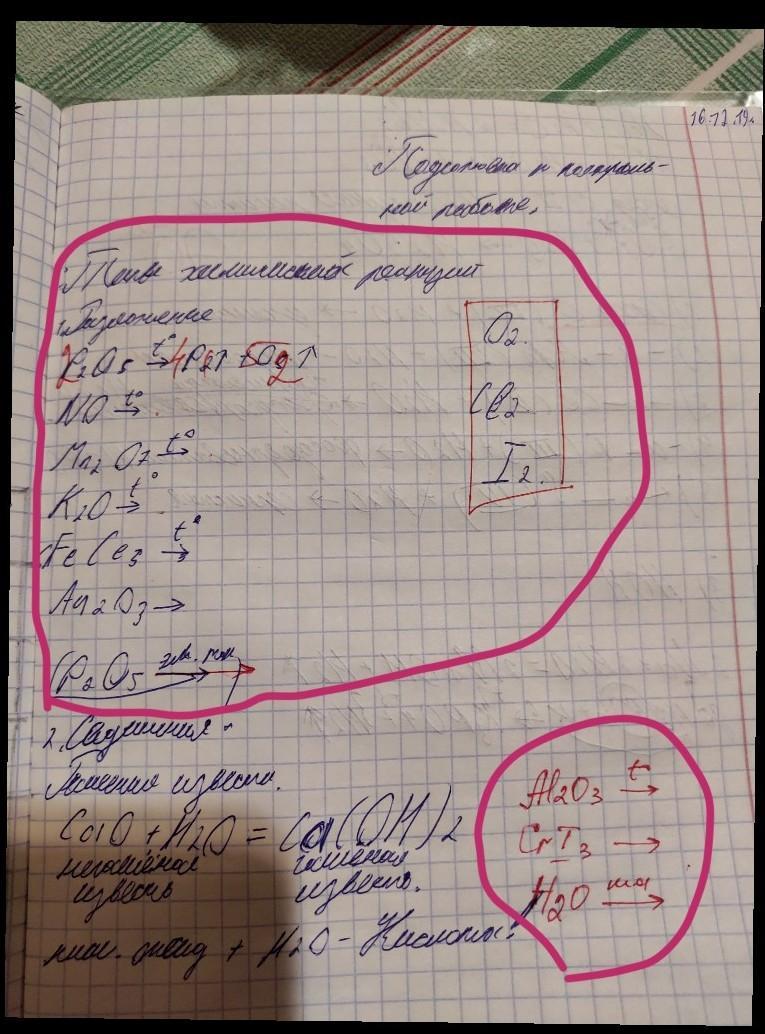 16.12.19г.
Подготовка к контроль-
ной работе.
Типы химический реакций
1. Разложение
2P2O5 t°→ 4P + 5O2↑
NO t°→
Mn2O7 t°→
K2O t°→
FeCl3 t°→
Au2O3 →
(P2O5 эл. ток→)
O2.
Cl2
I2.
2. Соединения.
Гашения извести.
CaO + H2O = Ca(OH)2
негашёная гашёная
известь известь.
кис. оксид + H2O - Кислоты:
Al2O3 t→
CrI3 →
H2O ток→